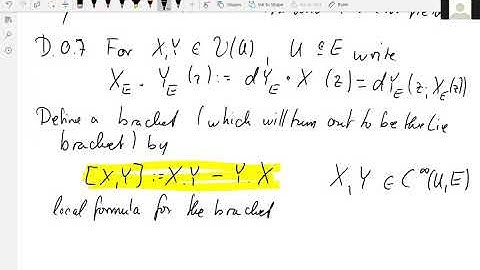 D.0.7 For X,Y ∈ V(U), U ⊆ E write
X_E . Y_E (z) := dY_E • X (z) = dY_E(z; X_E(z))
Define a bracket (which will turn out to be the Lie
bracket) by
[X,Y] := X.Y - Y.X X,Y ∈ C^∞(U,E)
local formula for the bracket